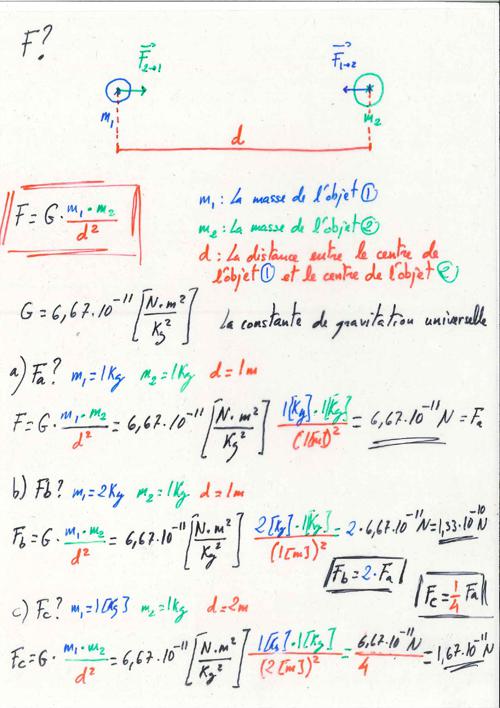 F?
F⃗2→1 F⃗1→2
m₁ m₂
d
F = G · m₁ · m₂ / d²
m₁ : La masse de l'objet ①
m₂ : La masse de l'objet ②
d : La distance entre le centre de
l'objet ① et le centre de l'objet ②
G = 6,67 · 10⁻¹¹ [N · m² / Kg²] La constante de gravitation universelle
a) Fa? m₁ = 1Kg m₂ = 1Kg d = 1m
F = G · m₁ · m₂ / d² = 6,67 · 10⁻¹¹ [N · m² / Kg²] 1[Kg] · 1[Kg] / (1[m])² = 6,67 · 10⁻¹¹ N = Fa
b) Fb? m₁ = 2Kg m₂ = 1Kg d = 1m
Fb = G · m₁ · m₂ / d² = 6,67 · 10⁻¹¹ [N · m² / Kg²] 2[Kg] · 1[Kg] / (1[m])² = 2 · 6,67 · 10⁻¹¹ N = 1,33 · 10⁻¹⁰ N
Fb = 2 · Fa
Fc = 1/4 Fa
c) Fc? m₁ = 1[Kg] m₂ = 1Kg d = 2m
Fc = G · m₁ · m₂ / d² = 6,67 · 10⁻¹¹ [N · m² / Kg²] 1[Kg] · 1[Kg] / (2[m])² = 6,67 · 10⁻¹¹ N / 4 = 1,67 · 10⁻¹¹ N